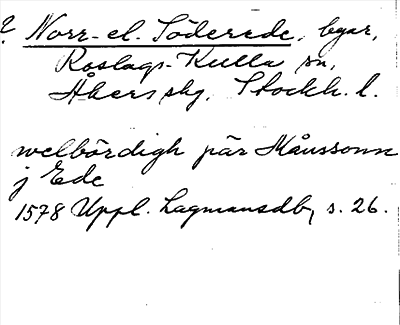 ? Norr- el. Söderede, byar,
Roslags-Kulla sn,
Åkers skg, Stockh. l.
welbördigh pär Månssonn
j Ede
1578 Uppl. Lagmansdb, s. 26.